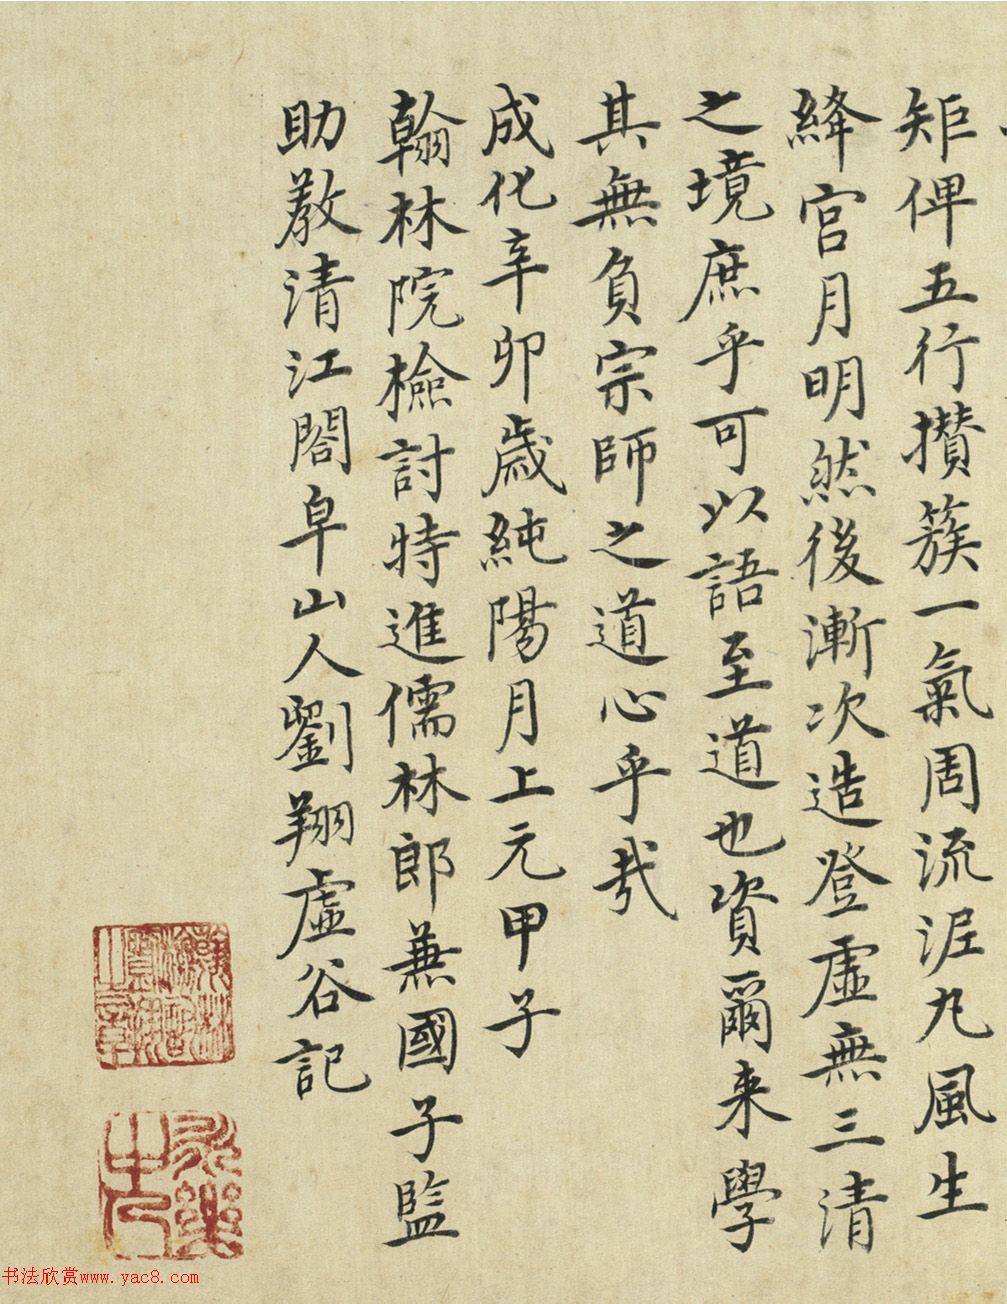 矩俾五行攅簇一氣周流泥丸風生
絳宮月明然後漸次造登虛無三清
之境庶乎可以語至道也資爾来學
其無負宗師之道心乎哉
成化辛卯歲純陽月上元甲子
翰林院檢討特進儒林郎兼國子監
助教清江閤皁山人劉翔虛谷記
书法欣赏www.yac8.com